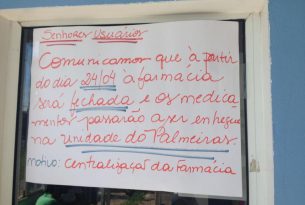 Senhores Usuários
Comunicamos que à partir
do dia 24/04 a farmácia
será fechada e os medica
mentos passarão a ser entregues
na unidade do Palmeiras.
motivo: Centralização da Farmácia